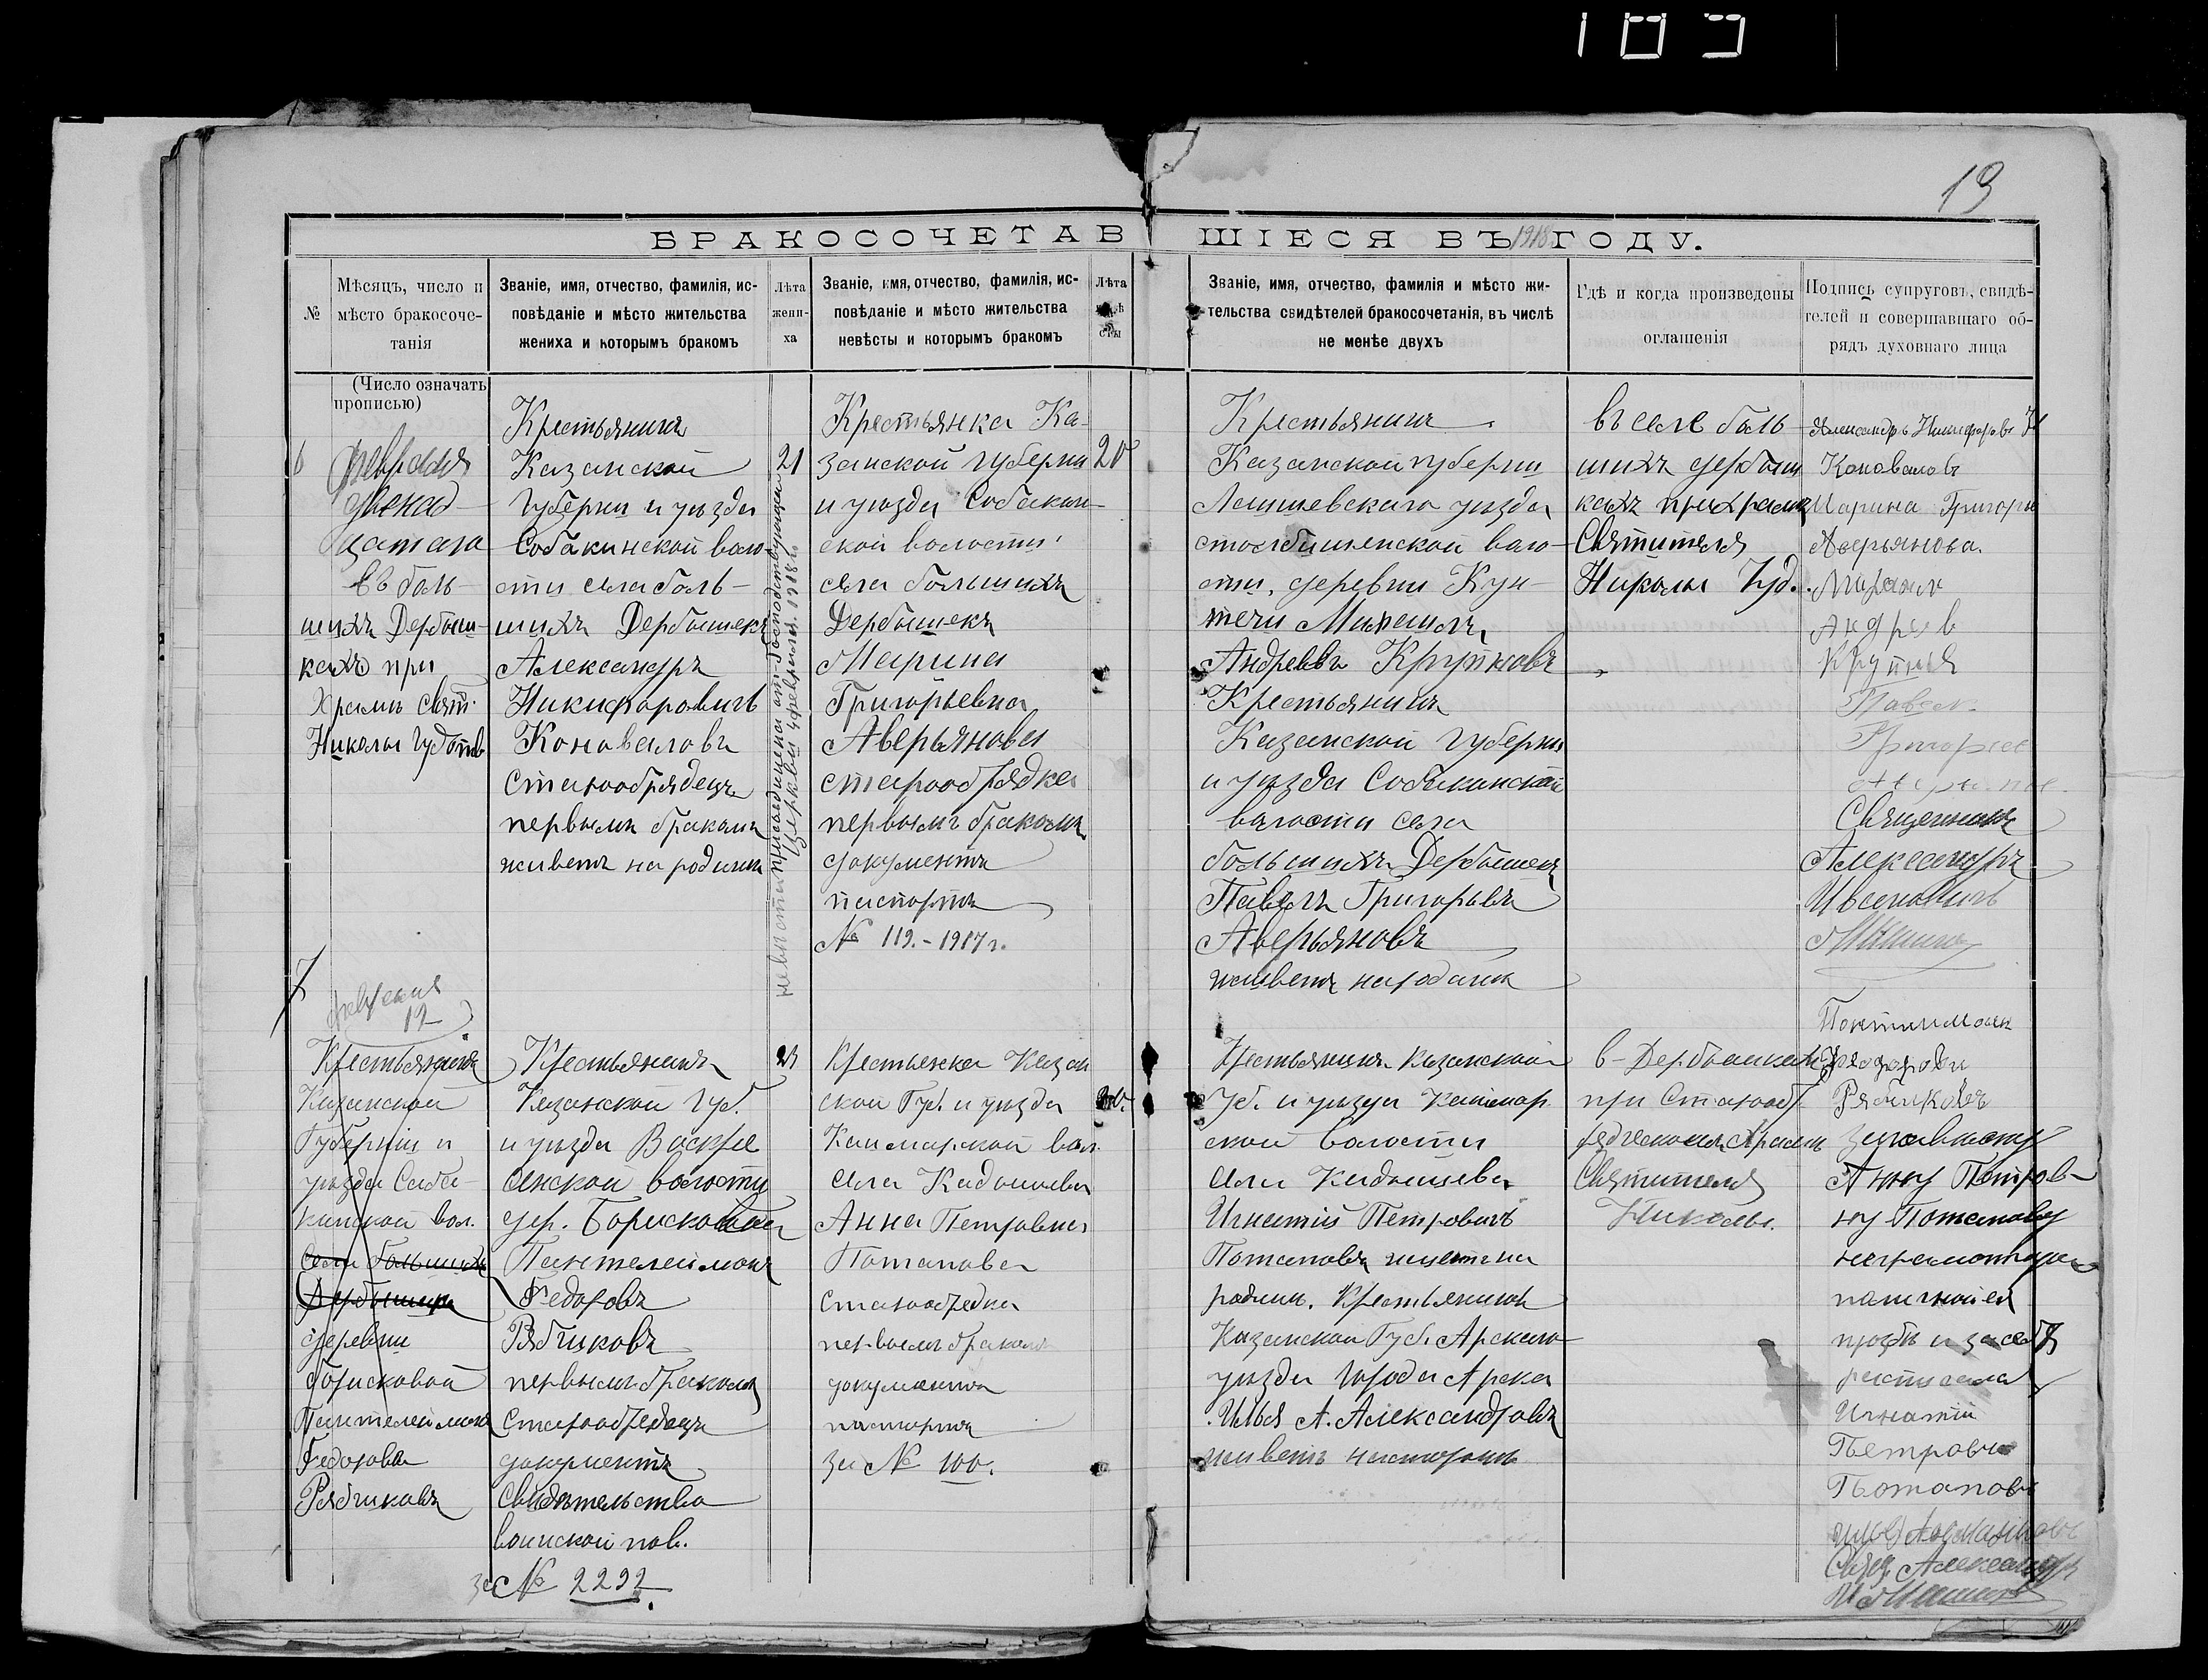 19
БРАКОСОЧЕТАВШІЕСЯ ВЪ 1918 ГОДУ.
№
Мѣсяцъ, число и
мѣсто бракосоче-
танія
Званіе, имя, отчество, фамилія, ис-
повѣданіе и мѣсто жительства
жениха и которымъ бракомъ
Лѣта
жени-
ха
Званіе, имя, отчество, фамилія, ис-
повѣданіе и мѣсто жительства
невѣсты и которымъ бракомъ
Лѣта
Званіе, имя, отчество, фамилія и мѣсто жи-
тельства свидѣтелей бракосочетанія, въ числѣ
не менѣе двухъ
Гдѣ и когда произведены
оглашенія
Подпись супруговъ, свидѣ-
телей и совершавшаго об-
рядъ духовнаго лица
(Число означать
прописью)
6
февраля
двенад-
цатаго
въ боль-
шихъ Дербыш-
кахъ при
Храмѣ свят.
Николы Чудотв
Крестьянинъ
Казанской
губерніи и уѣзда
Собакинской воло-
сти села боль-
шихъ Дербышекъ
Александръ
Никифоровичъ
Коноваловъ
старообрядецъ
первымъ бракомъ
живетъ на родинѣ
21
невѣста присоединена от господствующей
Церкви 4 февраля 1918 г.
Крестьянка Ка-
занской губерніи
и уѣзда Собакин-
ской волости
села большихъ
Дербышекъ
Марина
Григорьевна
Аверьянова
старообрядка
первымъ бракомъ
документъ
паспортъ
№ 119.-1917 г.
20
Крестьянинъ
Казанской губерніи
Лаишевскаго уѣзда
столбищенской воло-
сти, деревни Кун-
течи
Андреевъ Крупновъ
Крестьянинъ
Казанской губерніи
и уѣзда Собакинской
волости села
большихъ Дербышекъ
Павелъ Григорьевъ
Аверьяновъ
живетъ на родинѣ
въ селе боль-
шихъ дербыш
кахъ при храмѣ
Святителя
Николы Чуд.
Александръ Никифоровъ
Коноваловъ
Марина Григорье
Аверьянова.
Андреев
Крупнов
Павел
Григорьев
Священникъ
Александръ
Ивановичъ
7
февраля
12
Крестьянинъ
Казанской
Губерніи и
уѣзда Соба-
кинской вол.
села большихъ
Дербышки
деревни
борисковой
Пантелеймонъ
Федоровъ
Рябчиковъ
Крестьянинъ
Казанской Губ.
и уѣзда Воскре
сенской волости
дер. Борисковой
Пантелеймонъ
Федоровъ
Рябчиковъ
первымъ бракомъ
старообрядецъ
документъ
Свидѣтельство
воинской пов.
за № 2292
Крестьянка Казан
ской Губ. и уѣзда
Каимарской вол.
села Кадышева
Анна Петровна
Потапова
старообрядка
первымъ бракомъ
документъ
паспортъ
за № 100.
20.
Крестьянинъ Казанской
Губ. и уѣзда Каимар
ской волости
села Кадышева
Игнатій Петровичъ
Потаповъ живетъ на
родинѣ. Крестьянинъ
Казанской Губ. Арскаго
уѣзда города Арска
Илья А. Александровъ
живетъ
в-Дербышкахъ
при Старооб-
рядческомъ Храмѣ
Святителя
Николы.
Пантилмоин
Федоровъ
Рябчиковъ
за невѣсту
Анну Петров-
ну Потапову
неграмотную
по личной ея
прозбѣ и за себя
росписался
Игнатій
Петровъ
Потаповъ
Свящ. Александръ